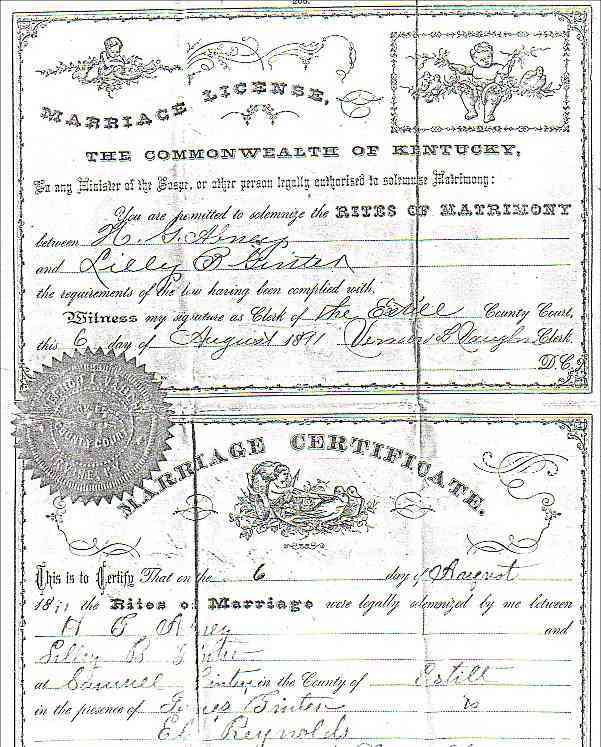 205.
MARRIAGE LICENSE,
THE COMMONWEALTH OF KENTUCKY,
To any Minister of the Gospe, or other person legally authorised to solemnise Matrimony:
You are permitted to solemnize the RITES OF MATRIMONY
between H. G. Abney
and Lilly B Ginter
the requirements of the law having been complied with.
Witness my signature as Clerk of the Estill County Court,
this 6 day of August 1891 Vernon L. Vaughn Clerk.
D.C.
COUNTY COURT
MARRIAGE CERTIFICATE.
This is to Certify That on the 6 day of August
18 the Rites of Marriage were legally solemnized by me between
H Abney and
Lilly B Ginter
at Samuel Ginters in the County of Estill
in the presence of Ginter
Reynolds